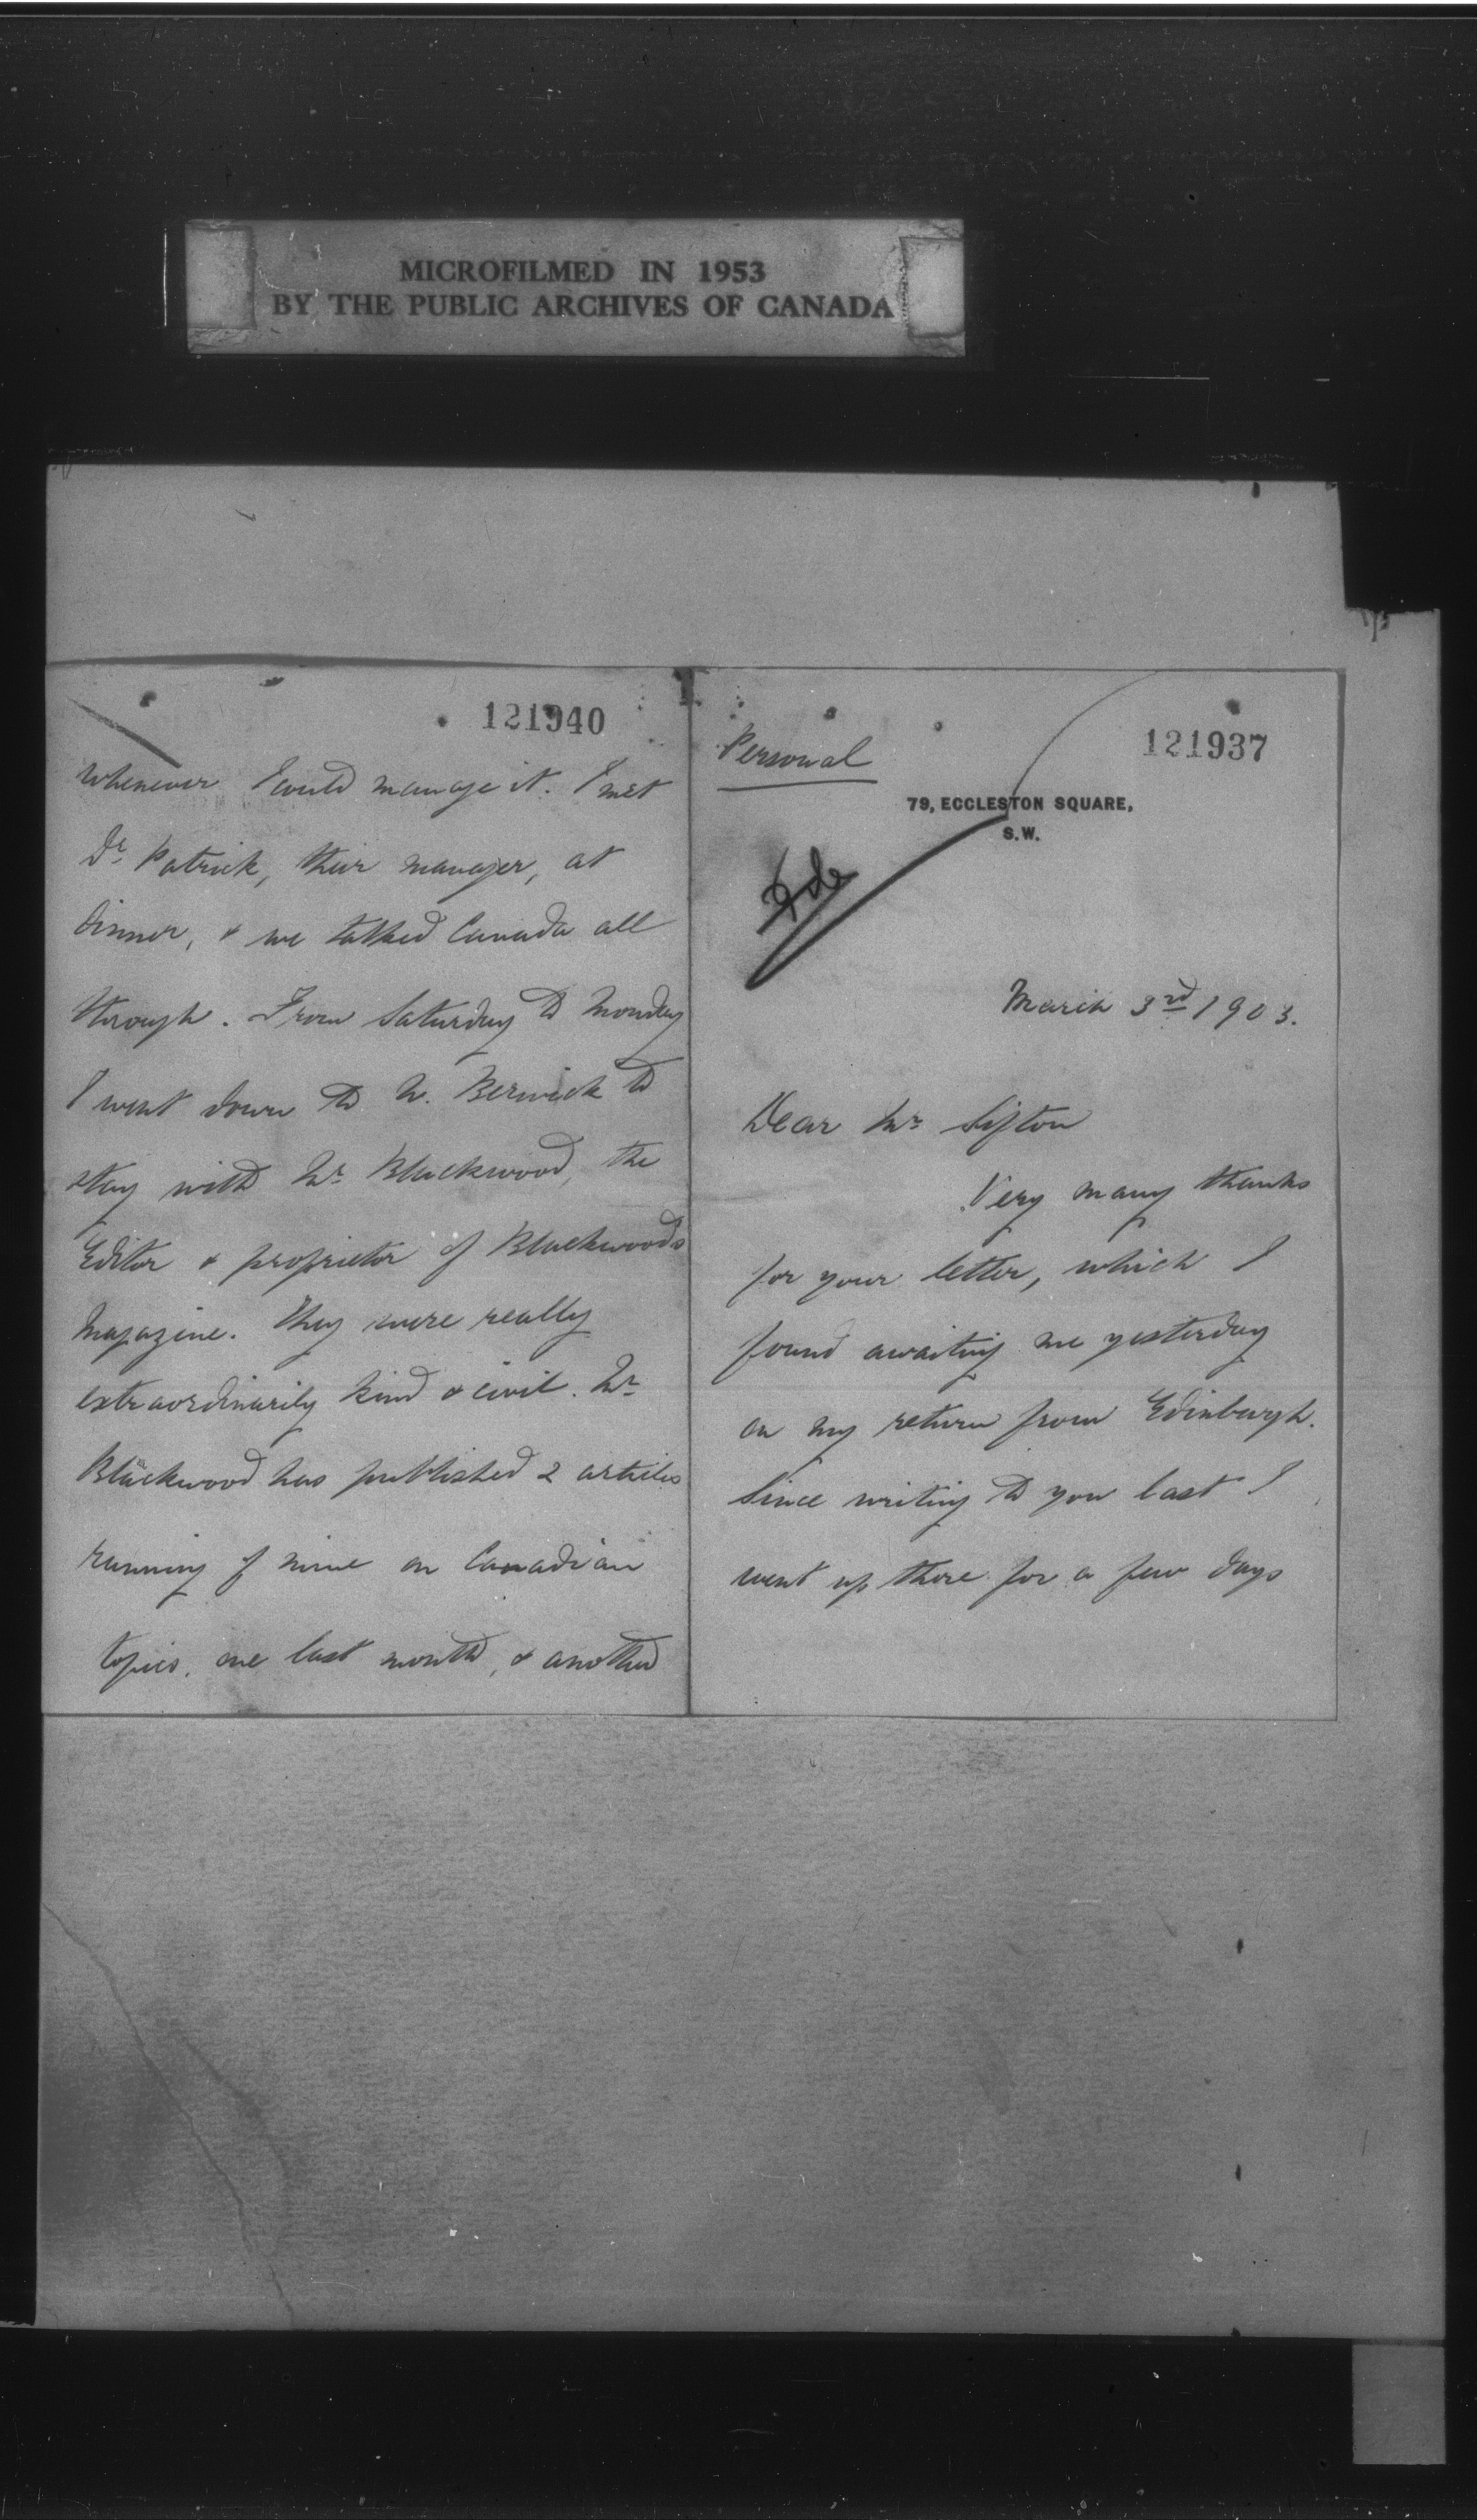 MICROFILMED IN 1953
BY THE PUBLIC ARCHIVES OF CANADA
121940
whenever I could manage it. I met
Dr. Patrick, their manager, at
dinner, & we talked Canada all
through. From Saturday to Monday
I went down to N. Berwick to
stay with Mr. Blackwood, the
Editor & proprietor of Blackwoods
Magazine. They were really
extraordinarily kind & civil. Mr.
Blackwood has published 2 articles
running of mine on Canadian
topics, one last month, & another
121937
Personal
79, ECCLESTON SQUARE,
S.W.
March 3rd 1903.
Dear Mr. Sifton
Very many thanks
for your letter, which I
found awaiting me yesterday
on my return from Edinburgh.
Since writing to you last I
went up there for a few days